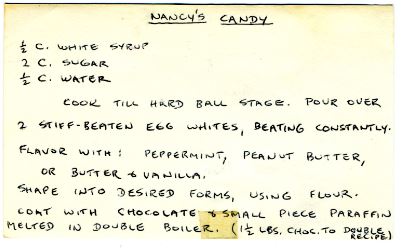 NANCY'S CANDY
½ C. WHITE SYRUP
2 C. SUGAR
½ C. WATER
COOK TILL HARD BALL STAGE. POUR OVER
2 STIFF-BEATEN EGG WHITES, BEATING CONSTANTLY.
FLAVOR WITH: PEPPERMINT, PEANUT BUTTER,
OR BUTTER & VANILLA.
SHAPE INTO DESIRED FORMS, USING FLOUR.
COAT WITH CHOCOLATE & SMALL PIECE PARAFFIN
MELTED IN DOUBLE BOILER. (1½ LBS. CHOC. TO DOUBLE
RECIPE)